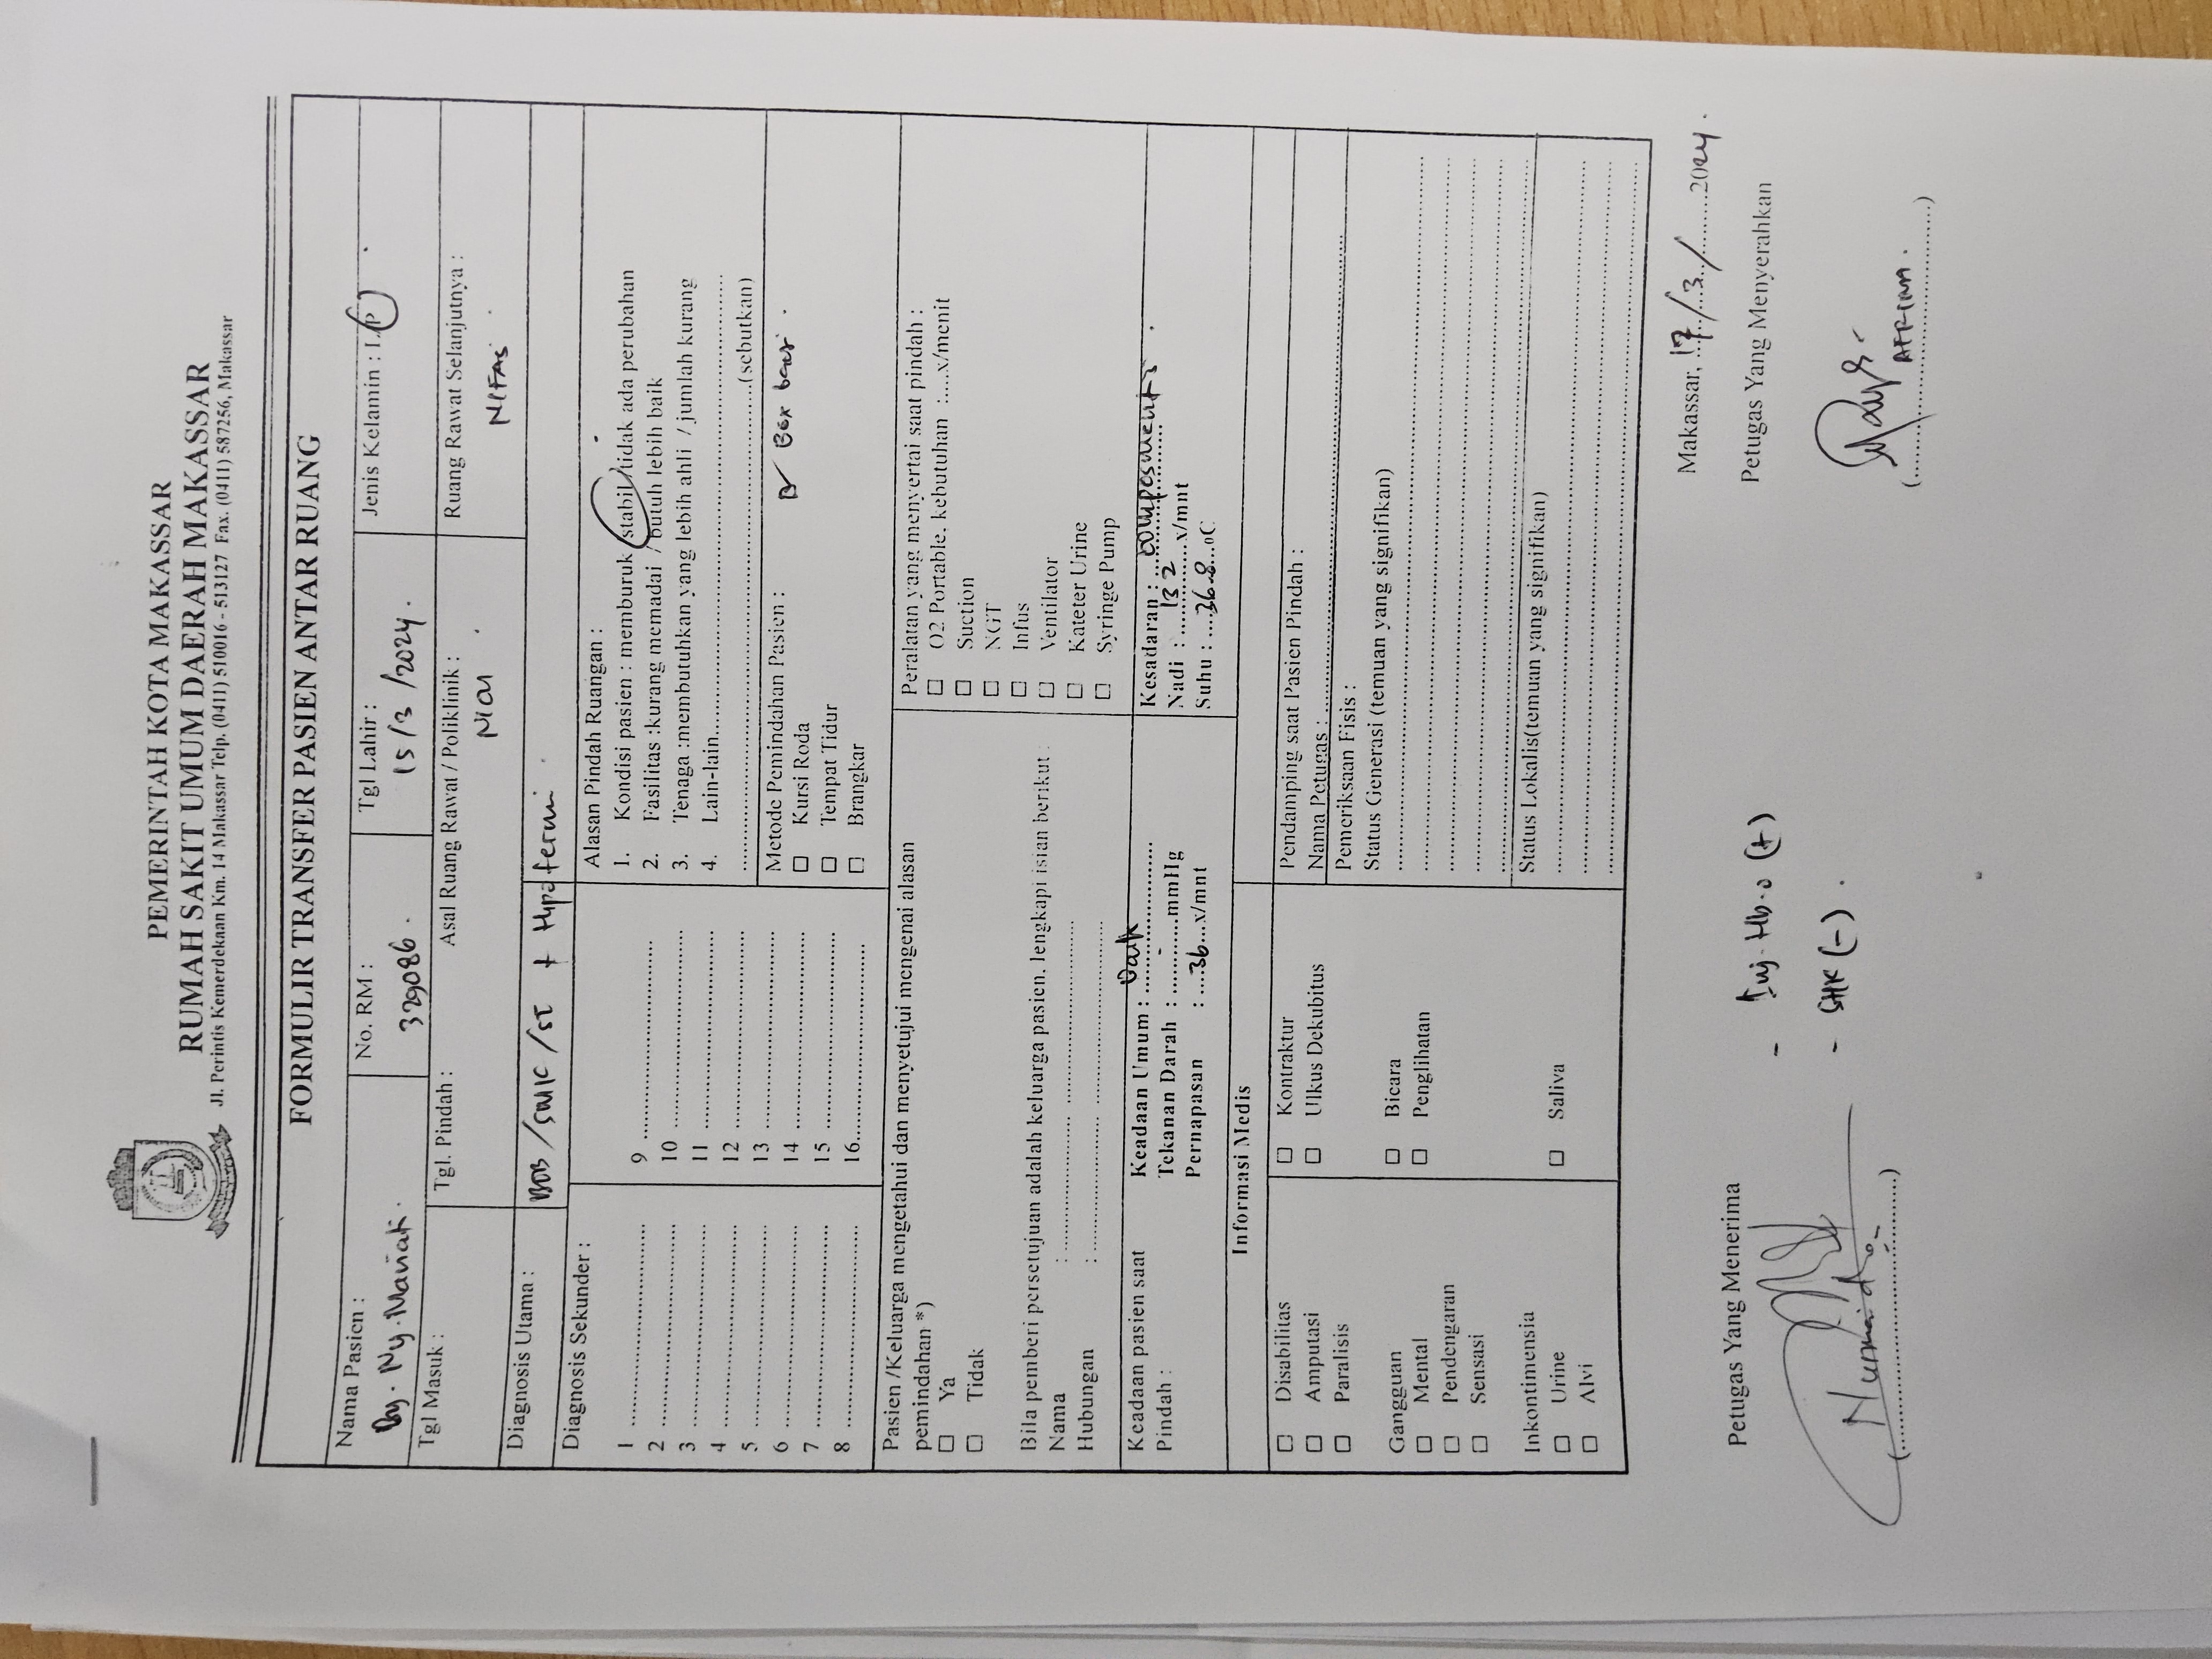 PEMERINTAH KOTA MAKASSAR
RUMAH SAKIT UMUM DAERAH MAKASSAR
Jl. Perintis Kemerdekaan Km. 14 Makassar Telp. (0411) 510016 - 513127 Fax. (0411) 587256, Makassar
FORMULIR TRANSFER PASIEN ANTAR RUANG
Nama Pasien :
By. Ny. Mariati.
No. RM :
329086.
Tgl Lahir :
15/3/2024.
Jenis Kelamin : L/P
Tgl Masuk :
Tgl. Pindah :
Asal Ruang Rawat / Poliklinik :
NICU
Ruang Rawat Selanjutnya :
NIFAS
Diagnosis Utama :
BCB/SMK/SC + Hipotermi
Diagnosis Sekunder :
1 ..............................
2 ..............................
3 ..............................
4 ..............................
5 ..............................
6 ..............................
7 ..............................
8 ..............................
9 ..............................
10 ..............................
11 ..............................
12 ..............................
13 ..............................
14 ..............................
15 ..............................
16..............................
Alasan Pindah Ruangan :
1. Kondisi pasien : memburuk /stabil /tidak ada perubahan
2. Fasilitas :kurang memadai / butuh lebih baik
3. Tenaga :membutuhkan yang lebih ahli / jumlah kurang
4. Lain-lain..............................
..............................(sebutkan)
Metode Pemindahan Pasien :
☑ Box bayi.
☐ Kursi Roda
☐ Tempat Tidur
☐ Brangkar
Pasien /Keluarga mengetahui dan menyetujui mengenai alasan
pemindahan *)
☐ Ya
☐ Tidak
Bila pemberi persetujuan adalah keluarga pasien, lengkapi isian berikut :
Nama : ..............................
Hubungan : ..............................
Peralatan yang menyertai saat pindah :
☐ O2 Portable, kebutuhan :....x/menit
☐ Suction
☐ NGT
☐ Infus
☐ Ventilator
☐ Kateter Urine
☐ Syringe Pump
Keadaan pasien saat
Pindah :
Keadaan Umum : Baik
Tekanan Darah : ....-....mmHg
Pernapasan : ....36...x/mnt
Kesadaran : composmentis.
Nadi : 132 x/mnt
Suhu : ....36.8...oC
Informasi Medis
☐ Disabilitas
☐ Amputasi
☐ Paralisis
Gangguan
☐ Mental
☐ Pendengaran
☐ Sensasi
Inkontimensia
☐ Urine
☐ Alvi
☐ Kontraktur
☐ Ulkus Dekubitus
☐ Bicara
☐ Penglihatan
☐ Saliva
Pendamping saat Pasien Pindah :
Nama Petugas : ..............................
Pemeriksaan Fisis :
Status Generasi (temuan yang signifikan)
Status Lokalis(temuan yang signifikan)
Makassar, 17/3/2024.
Petugas Yang Menerima
Petugas Yang Menyerahkan
- Inj. Hb.o (+)
- SHK (-).
AFRINA.